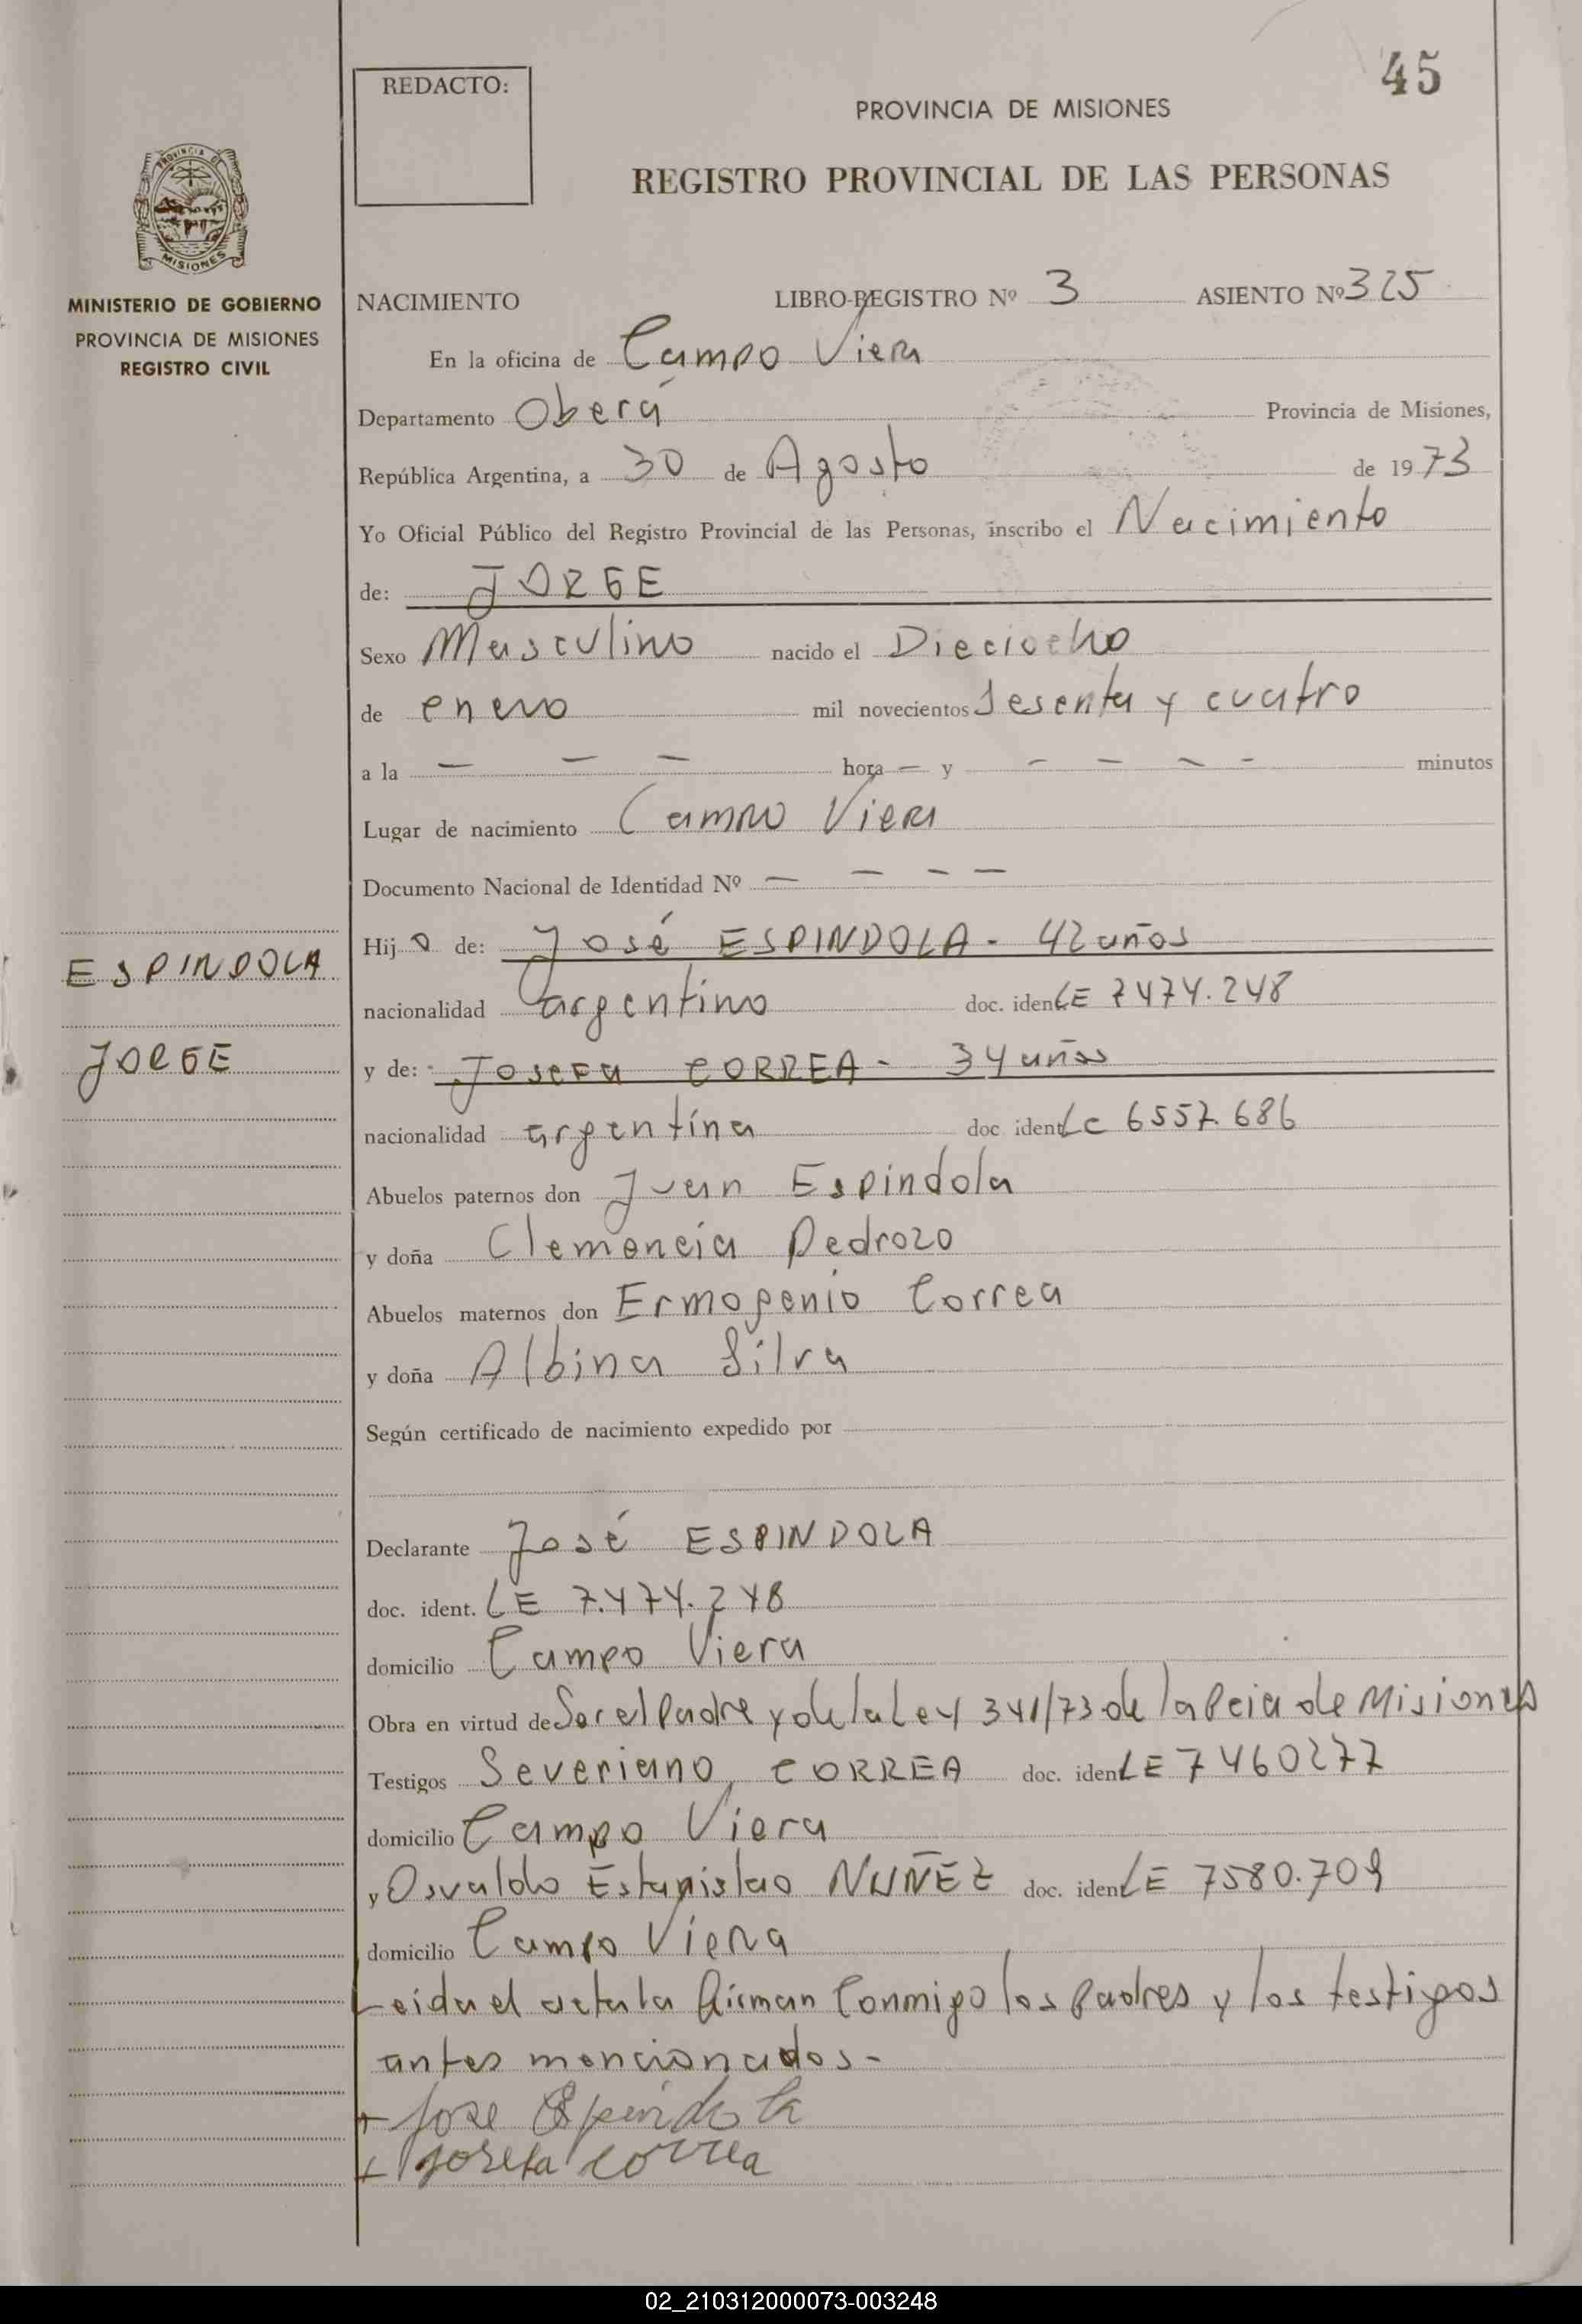 45
REDACTO:
PROVINCIA DE MISIONES
REGISTRO PROVINCIAL DE LAS PERSONAS
PROVINCIA DE
MISIONES
MINISTERIO DE GOBIERNO
PROVINCIA DE MISIONES
REGISTRO CIVIL
NACIMIENTO LIBRO-REGISTRO Nº 3 ASIENTO Nº 325
En la oficina de Campo Viera
Departamento Oberá Provincia de Misiones,
República Argentina, a 30 de Agosto de 1973
Yo Oficial Público del Registro Provincial de las Personas, inscribo el Nacimiento
de: JORGE
Sexo Masculino nacido el Dieciocho
de enero mil novecientos sesenta y cuatro
a la — — — hora — y — — — — minutos
Lugar de nacimiento Campo Viera
Documento Nacional de Identidad Nº — — — —
Hijo de: José ESPINDOLA - 42 años
ESPINDOLA
nacionalidad argentino doc. iden LE 7474.248
JORGE
y de: Josefa CORREA - 34 años
nacionalidad argentína doc. ident LC 6557.686
Abuelos paternos don Juan Espindola
y doña Clemencia Pedrozo
Abuelos maternos don Ermogenio Correa
y doña Albina Silva
Según certificado de nacimiento expedido por
Declarante José ESPINDOLA
doc. ident. LE 7.474.248
domicilio Campo Viera
Obra en virtud de Ser el Padre y de la Ley 341/73 de la Pcia de Misiones
Testigos Severiano, CORREA doc. iden LE 7460277
domicilio Campo Viera
y Osvaldo Estanislao NUÑEZ doc. iden LE 7580.709
domicilio Campo Viera
Leida el acta la firman Conmigo los padres y los testigos
antes mencionados-
+ Jose Espindola
+ Josefa correa
02_210312000073-003248